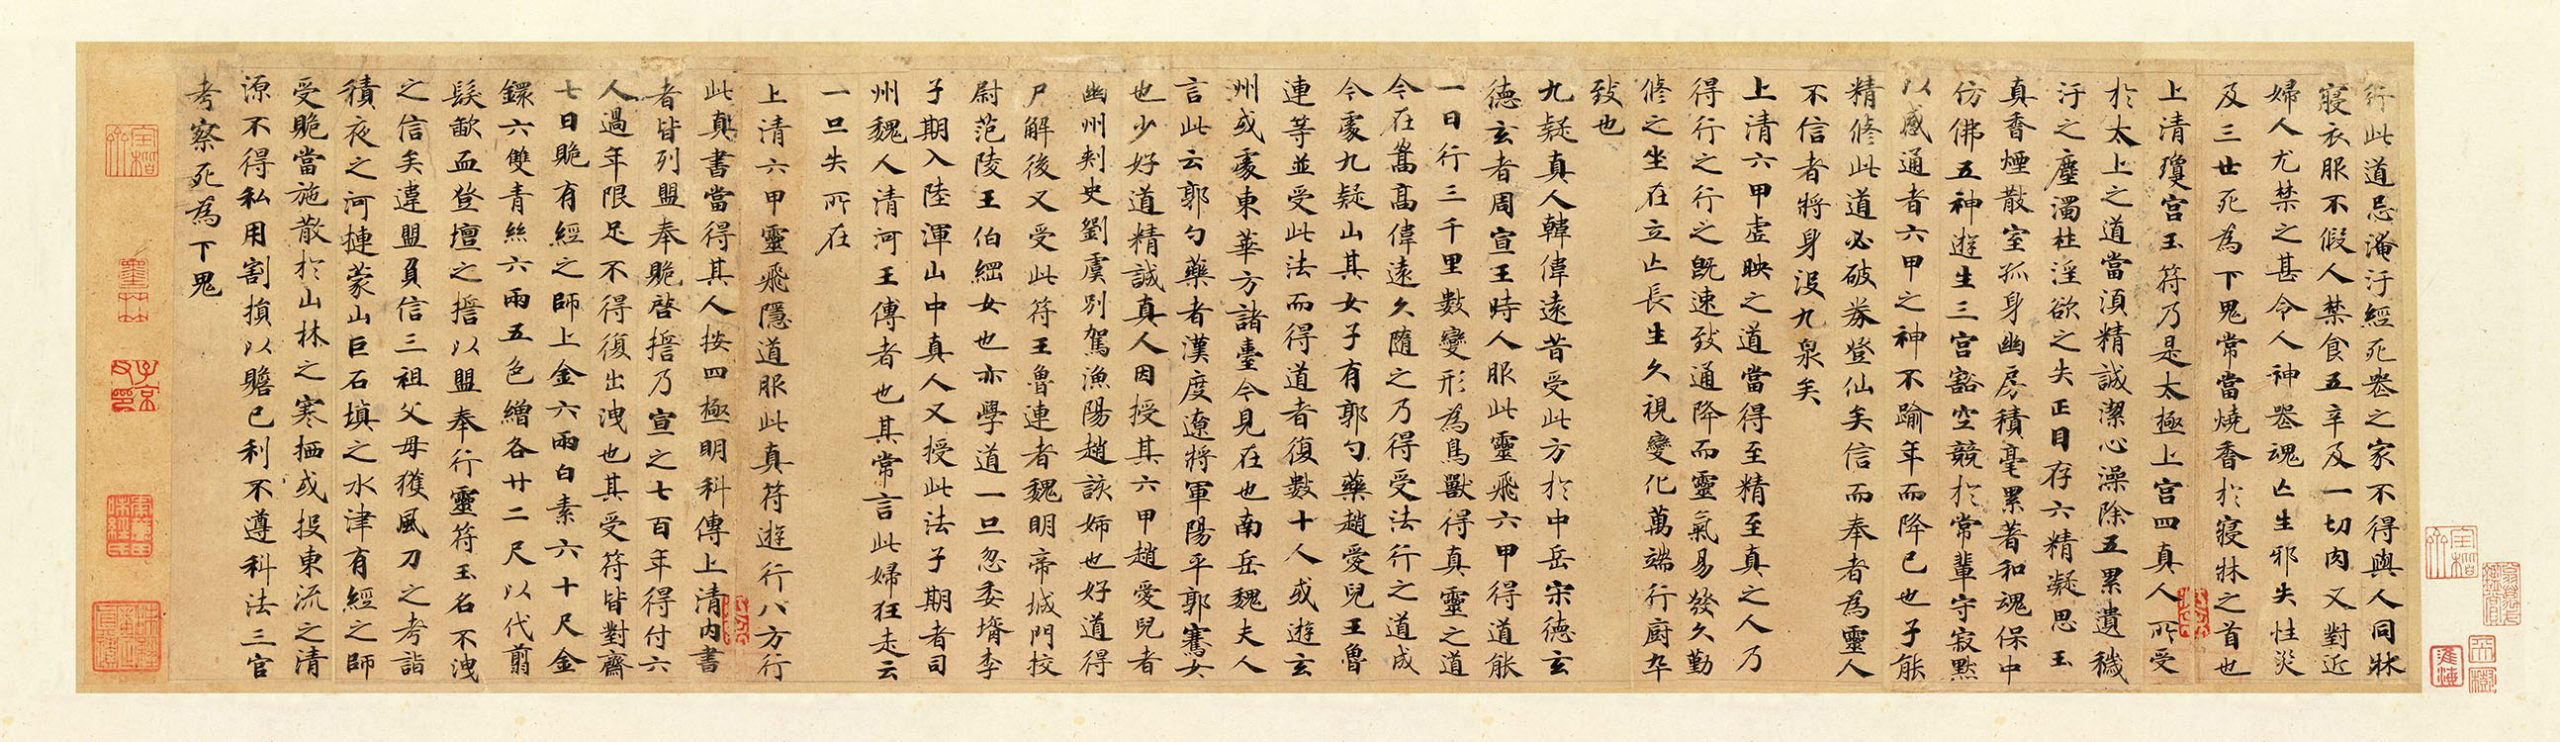 行此道忌淹汙經死喪之家不得與人同牀
寢衣服不假人禁食五辛及一切肉又對近
婦人尤禁之甚令人神喪魂亡生邪失性災
及三世死為下鬼常當燒香於寢牀之首也
上清瓊宮玉符乃是太極上宮四真人所受
於太上之道當須精誠潔心澡除五累遺穢
汙之塵濁杜淫欲之失正目存六精凝思玉
真香煙散室孤身幽房積毫累著和魂保中
仿佛五神遊生三宮豁空競於常輩守寂默
以感通者六甲之神不踰年而降已也子能
精修此道必破券登仙矣信而奉者為靈人
不信者將身沒九泉矣
上清六甲虛映之道當得至精至真之人乃
得行之行之既速致通降而靈氣易發久勤
修之坐在立亡長生久視變化萬端行廚卒
致也
九疑真人韓偉遠昔受此方於中岳宋德玄
德玄者周宣王時人服此靈飛六甲得道能
一日行三千里數變形為鳥獸得真靈之道
今在嵩高偉遠久隨之乃得受法行之道成
今處九疑山其女子有郭勺藥趙愛兒王魯
連等並受此法而得道者復數十人或遊玄
州或處東華方諸臺今見在也南岳魏夫人
言此云郭勺藥者漢度遼將軍陽平郭騫女
也少好道精誠真人因授其六甲趙愛兒者
幽州刾史劉虞別駕漁陽趙該姉也好道得
尸解後又受此符王魯連者魏明帝城門挍
尉范陵王伯綱女也亦學道一旦忽委壻李
子期入陸渾山中真人又授此法子期者司
州魏人清河王傳者也其常言此婦狂走云
一旦失所在
上清六甲靈飛隱道服此真符遊行八方行
此真書當得其人按四極明科傳上清內書
者皆列盟奉貺啓撎乃宣之七百年得付六
人過年限足不得復出洩也其受符皆對齋
七日貺有經之師上金六兩白素六十尺金
鐶六雙青絲六兩五色繒各廿二尺以代翦
髮歃血登壇之撎以盟奉行靈符玉名不洩
之信矣違盟負信三祖父母獲風刀之考詣
積夜之河捷蒙山巨石填之水津有經之師
受貺當施散於山林之寒栖或投東流之清
源不得私用割損以贍已利不遵科法三官
考察死為下鬼